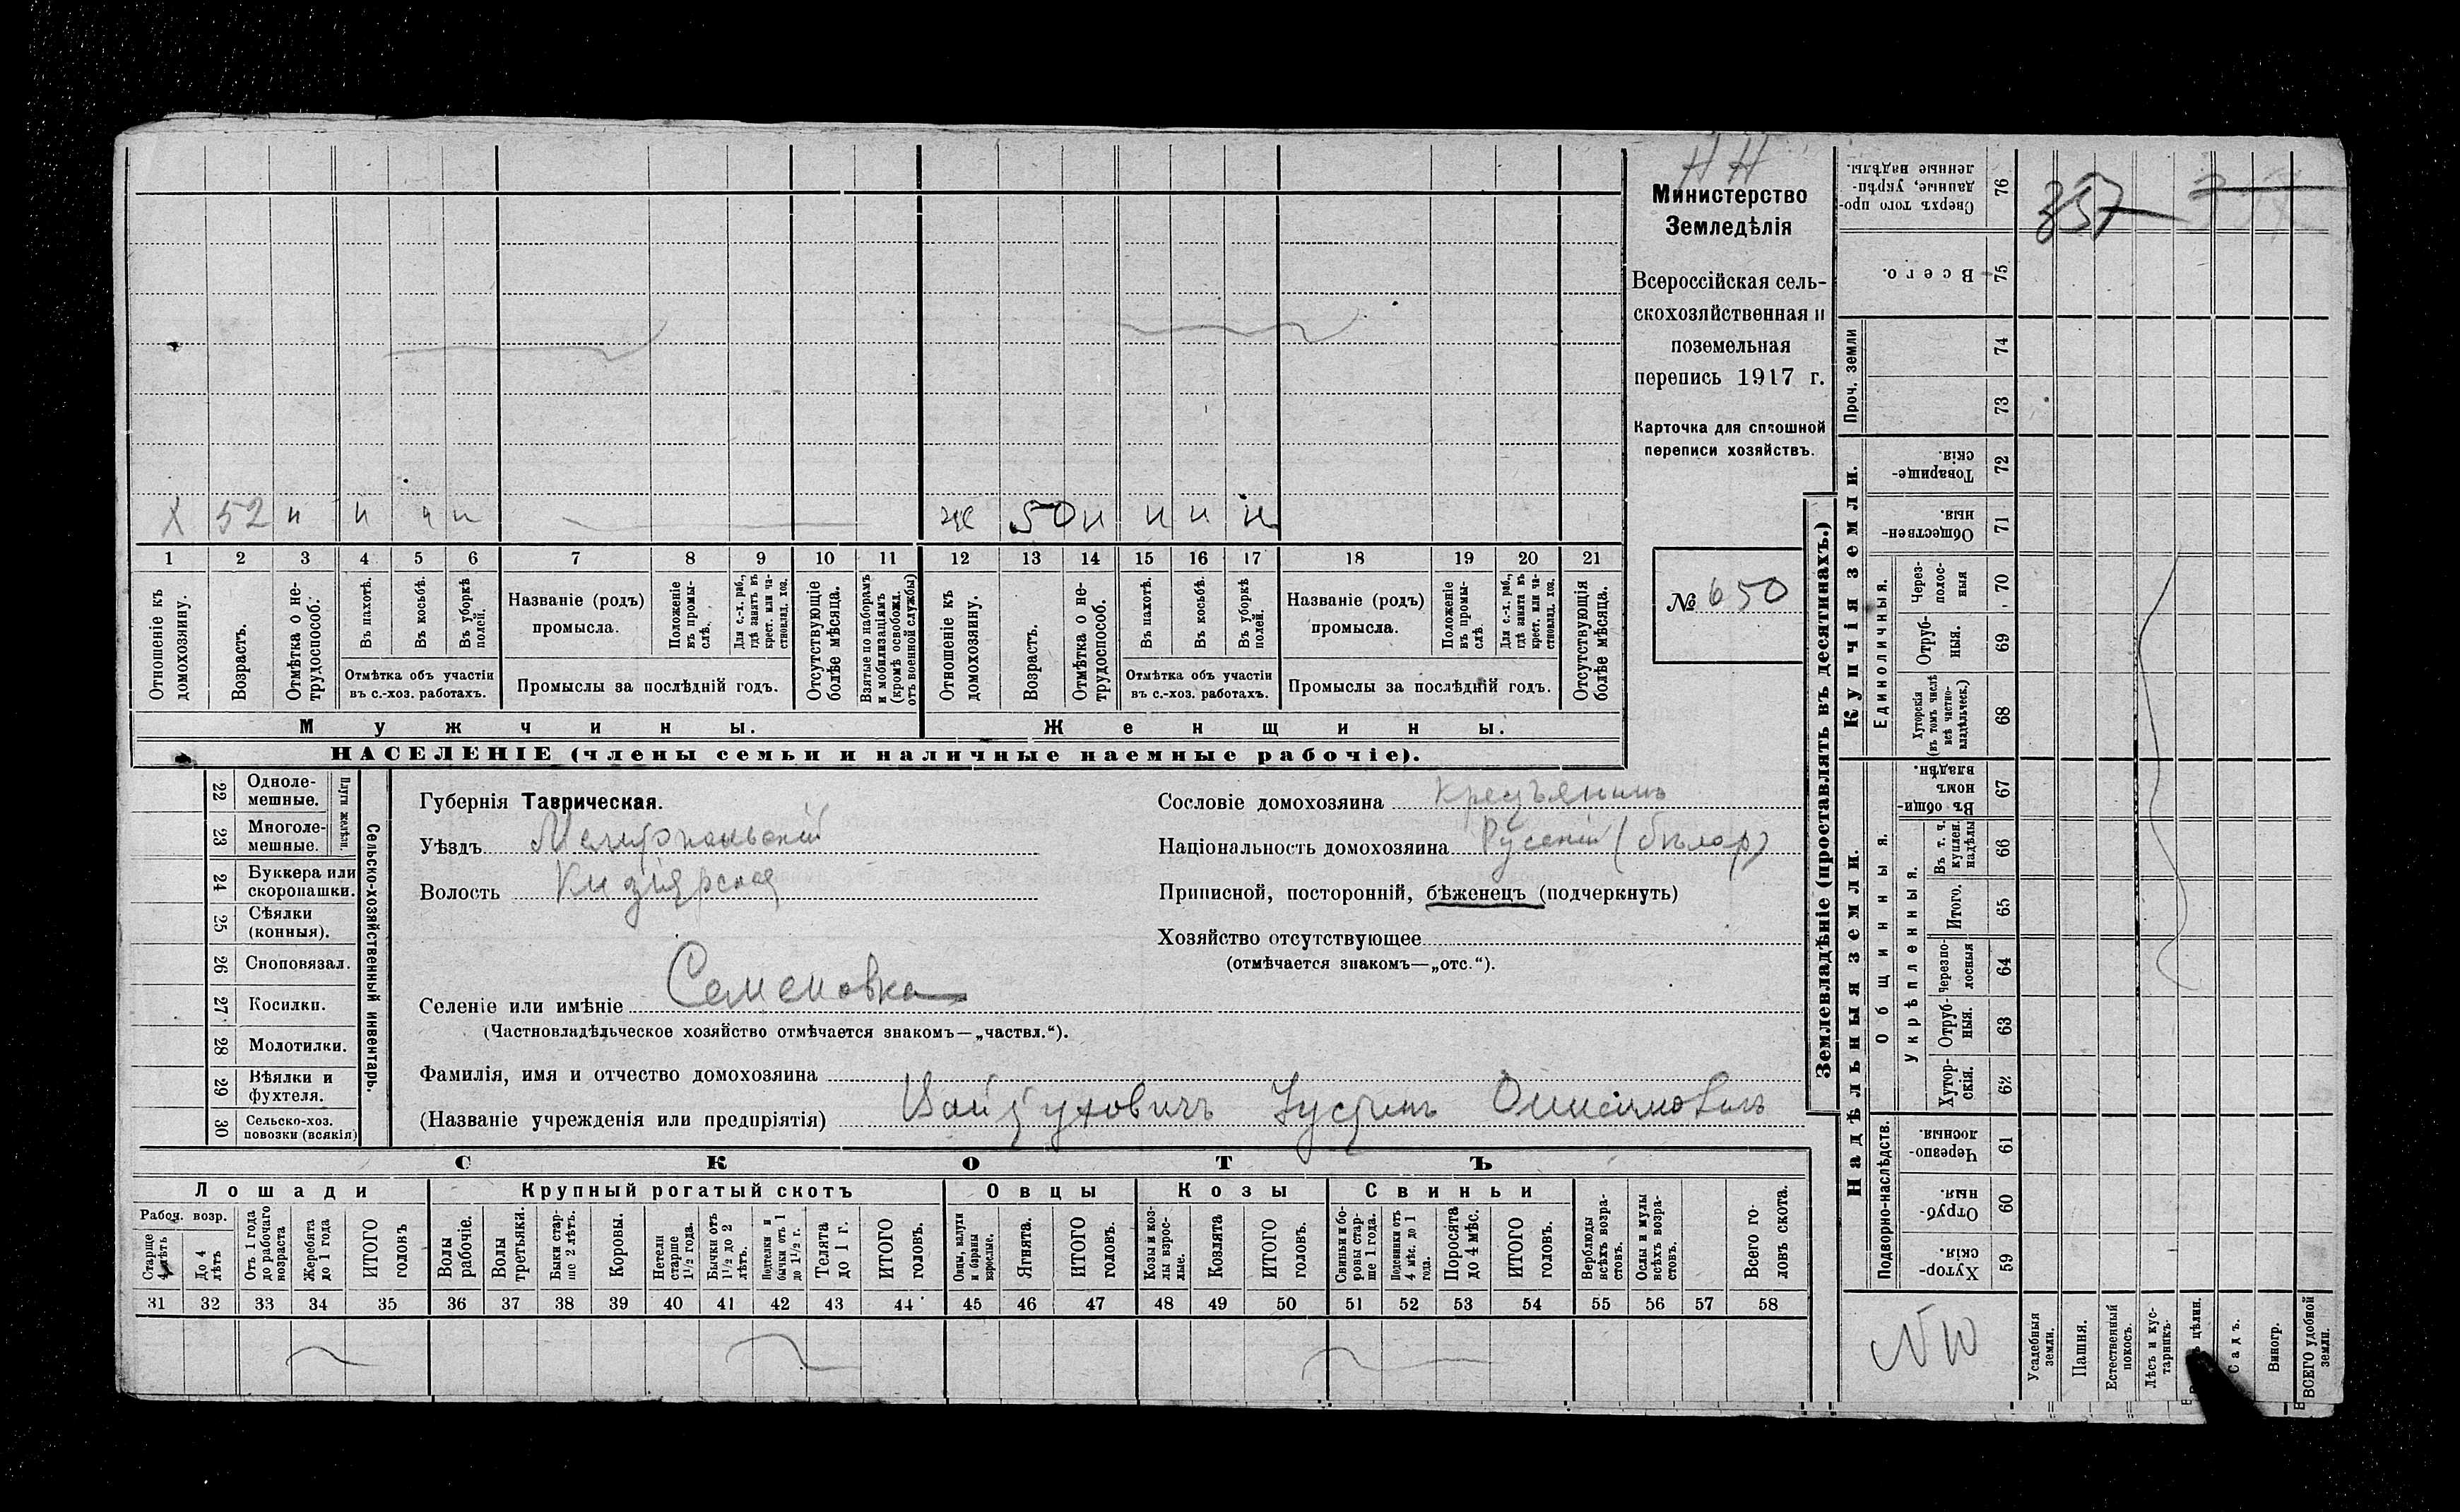 Н Н
Министерство
Земледѣлія
Всероссійская сель-
скохозяйственная и
поземельная
перепись 1917 г.
Карточка для сплошной
переписи хозяйствъ.
№ 650
Х 52 н н н н
ж 50 н н н н
1 2 3 4 5 6 7 8 9 10 11 12 13 14 15 16 17 18 19 20 21
Отношеніе къ домохозяину.
Возрастъ.
Отмѣтка о не-трудоспособ.
Въ пахотѣ.
Въ косьбѣ.
Въ уборкѣ полей.
Отмѣтка объ участіи
въ с.-хоз. работахъ.
Названіе (родъ)
промысла.
Положеніе въ промы-слѣ.
Для с.-х. раб., гдѣ занятъ въ крест. или ча-стновлад. хоз.
Промыслы за послѣдній годъ.
Отсутствующіе болѣе мѣсяца.
Взятые по наборамъ и мобилизаціямъ (кромѣ освобожд. отъ военной службы)
Отношеніе къ домохозяину.
Возрастъ.
Отмѣтка о не-трудоспособ.
Въ пахотѣ.
Въ косьбѣ.
Въ уборкѣ полей.
Отмѣтка объ участіи
въ с.-хоз. работахъ.
Названіе (родъ)
промысла.
Положеніе въ промы-слѣ.
Для с.-х. раб., гдѣ занята въ крест. или ча-стновлад. хоз.
Промыслы за послѣдній годъ.
Отсутствующія болѣе мѣсяца.
Мужчины.
Женщины.
НАСЕЛЕНІЕ (члены семьи и наличные наемные рабочіе).
Сельско-хозяйственный инвентарь.
Плуги желѣзн.
22 Одноле-мешные.
23 Многоле-мешные.
24 Буккера или скоропашки.
25 Сѣялки (конныя).
26 Сноповязал.
27 Косилки.
28 Молотилки.
29 Вѣялки и фухтеля.
30 Сельско-хоз. повозки (всякія)
Губернія Таврическая.
Уѣздъ Мелитопольскій
Волость Кизіярская
Селеніе или имѣніе Семеновка
(Частновладѣльческое хозяйство отмѣчается знакомъ—„частвл.“).
Сословіе домохозяина крестьянинъ
Національность домохозяина Русскій (бѣлор)
Приписной, посторонній, бѣженецъ (подчеркнуть)
Хозяйство отсутствующее
(отмѣчается знакомъ—„отс.“).
Фамилія, имя и отчество домохозяина
(Названіе учрежденія или предпріятія) Устинъ Онисимовичъ
СКОТЪ
Лошади
Крупный рогатый скотъ
Овцы
Козы
Свиньи
Рабоч. возр.
Старше 4 лѣтъ
До 4 лѣтъ
Отъ 1 года до рабочаго возраста
Жеребята до 1 года
ИТОГО головъ
Волы рабочіе.
Волы третьяки.
Быки стар-ше 2 лѣтъ.
Коровы.
Нетели старше 1½ года.
Бычки отъ 1½ до 2 лѣтъ.
Подтелки и бычки отъ 1 до 1½ г.
Телята до 1 г.
ИТОГО головъ.
Овцы, валухи и бараны взрослые.
Ягнята.
ИТОГО головъ.
Козы и коз-лы взрос-лые.
Козлята
ИТОГО головъ.
Свиньи и бо-ровы стар-ше 1 года.
Подсвинки отъ 4 мѣс. до 1 года.
Поросята до 4 мѣс.
ИТОГО головъ.
Верблюды всѣхъ возра-стовъ.
Ослы и мулы всѣхъ возра-стовъ.
Всего го-ловъ скота.
31 32 33 34 35 36 37 38 39 40 41 42 43 44 45 46 47 48 49 50 51 52 53 54 55 56 57 58
Землевладѣніе (проставлять въ десятинахъ.)
357
Сверхъ того про-данные, укрѣп-ленные надѣлы. 76
Всего. 75
Проч. земли
74
73
Купчія земли.
Товарище-скія. 72
Обществен-ныя. 71
Единоличныя.
Через-полос-ныя 70
Отруб-ныя. 69
Хуторскія (въ томъ числѣ всѣ частно-владѣльческ.) 68
Надѣльныя земли.
Общинныя.
Въ общи-номъ владѣн. 67
Укрѣпленныя.
Въ т. ч. куплен. надѣлы 66
Итого. 65
Черезпо-лосныя 64
Отруб-ныя. 63
Хутор-скія. 62
Подворно-наслѣдств.
Черезпо-лосныя. 61
Отруб-ныя. 60
Хутор-скія. 59
Усадебныя земли.
Пашня.
Естественный покосъ.
Лѣсъ и кус-тарникъ.
цѣлин.
Садъ.
Виногр.
ВСЕГО удобной земли.